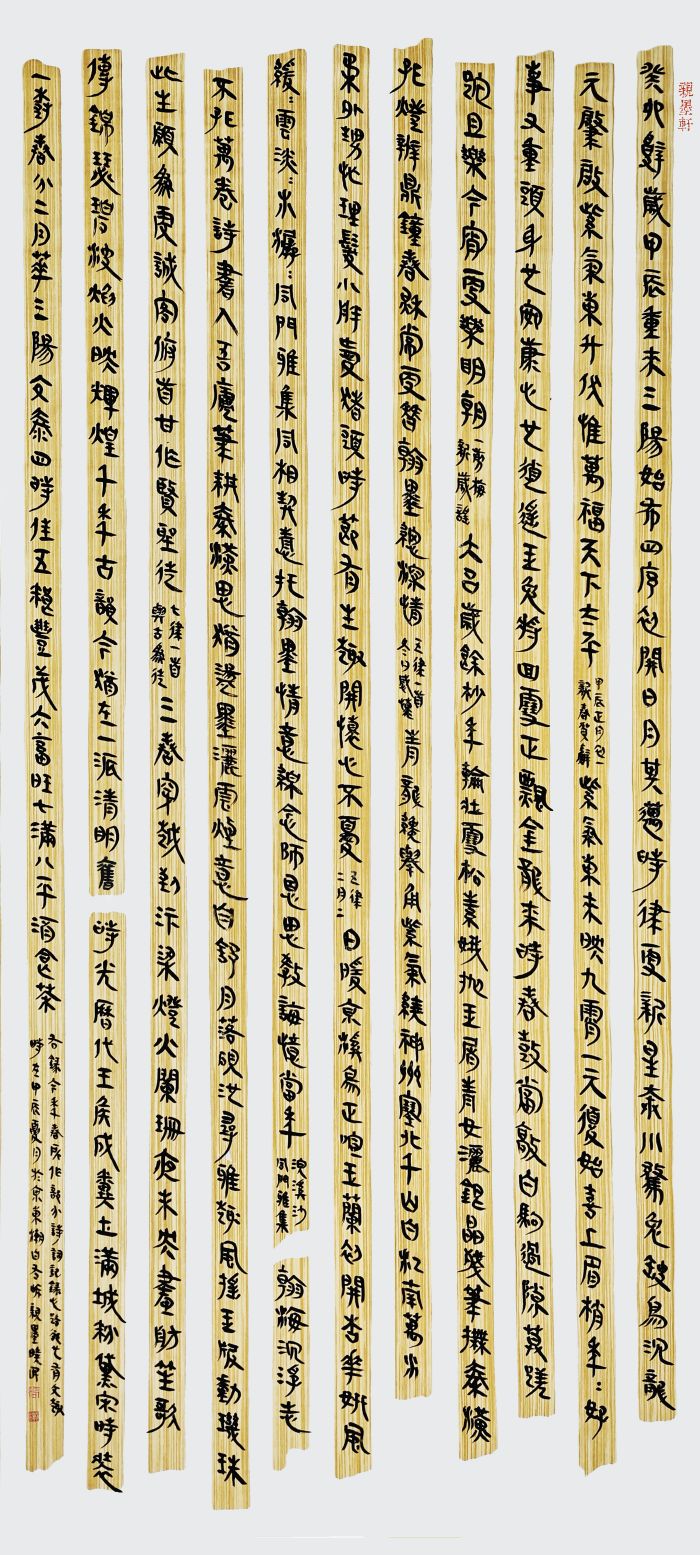 親墨軒
癸卯辭歲甲辰重來三陽始布四序初開日月其邁時律更新星奔川騖兔缺烏沉龍
元肇啟紫氣東升伏惟萬福天下太平
甲辰正月初一
新春賀辭
紫氣東來映九霄一元復始喜上眉梢年:好
事又重頭身也安康心也逍遙玉兔將回雪正飄金龍來時春鼓當敲白駒過隙莫蹉
跎且樂今宵更樂明朝
一剪梅
新歲謠
大呂歲餘杪年輪壯雪松素娥拋玉屑青女灑銀晶幾筆攤秦漢
孔燈辨鼎鐘春秋常更替翰墨總深情
五律一首
冬日感懷
青龍擧角紫氣繞神州塞北千山白江南萬水
柔外甥忙理髮小胖賣豬頭時節有生趣開懷心不憂
五律
二月二
日暖京溪鳥正喧玉蘭初開杏華妍風
緩:雲淡:水潺:同門雅集同相契意托翰墨情意綿念師恩思教誨憶當年
浣溪沙
同門雅集
翰海沉浮志
不移萬卷詩書入吾廬筆耕秦漢思猶湧墨灑雲煙意自舒月落硯池尋雅趣風搖玉版動璣珠
此生願爲虔誠客俯首甘作賢聖徒
七律一首
與古爲徒
三春穿越到汴梁燈火闌珊夜未央畫舫笙歌
傳錦瑟碧波焰火映輝煌千年古韻今猶在一派清明舊時光歷代王侯成糞土滿城粉黛宋時裝
一樹春分二月華三陽交泰四時佳五穀豐茂六畜旺七滿八平酒食茶
右錄今年春成作部分詩詞
時在甲辰夏月於京東